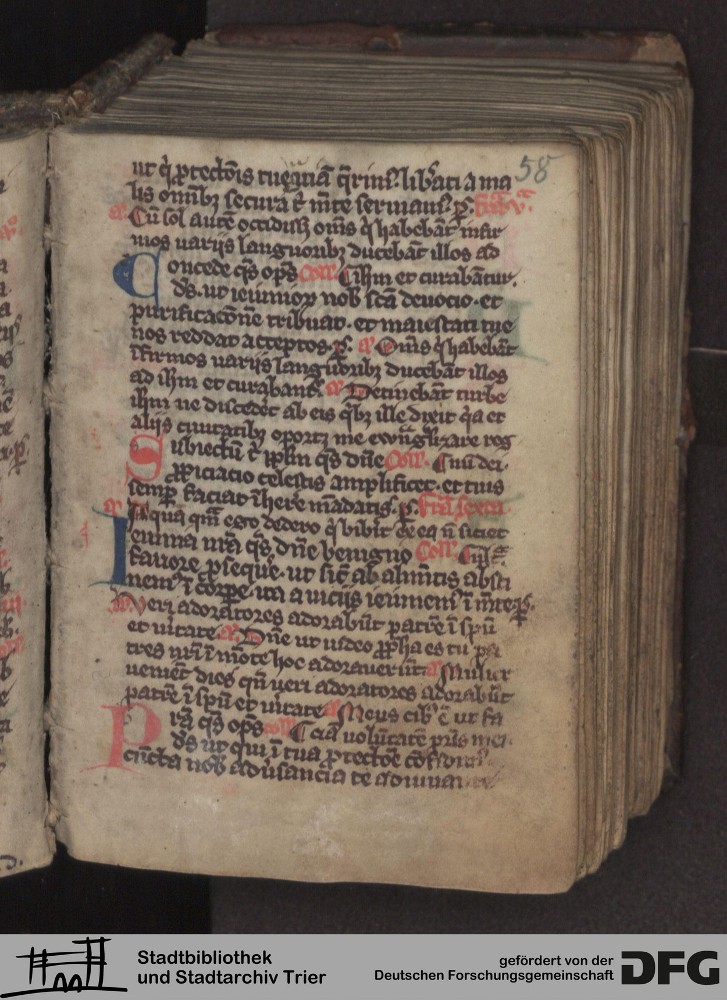 58
ut q̇ ꝓtectōis tue gr̄iā q̄rim⁹. lib̄ati a ma
lis om̄ibꝫ secura t̄ mēte seruiam⁹. ꝑ. Feria v.
Cū sol autē occidiss& om̄s q̇ habebāt infir
mos uarijs languoribꝫ ducebāt illos ad
oncede q̄s op̄s Coll. ihm et curabātur.
C ds. ut ieiunioꝝ nob̄ sc̄a deuocio. et
purificacōnē tribuat. et maiestati tue
nos reddat acceptos. ꝑ. Om̄s q̇ habebāt
īfirmos uarijs languōribꝫ ducebāt illos
ad ihm et curabant᷑. Detinebāt turbe
ihm ne discedēt ab eis q̇bꝫ ille dixit q̇a et
alijs ciuitatibꝫ oportꝫ me ewāglizare reg
Subiectū t̄ ipl̄m q̄s dn̄e Coll. nū dei.
ꝓpiciacio celestis amplificet. et tuis
semꝑ faciat īherē mādatis. ꝑ. Feria sexta
Aqua quā ego dedero q̇ bibit̄ ex ea n̄ siciet
Ieiunia nr̄a q̄s dn̄e benigno Coll.
fauore ꝓseque. ut sic̄ ab alimētis absti
nem⁹ ī corꝑe. ita a uiciis ieiunem⁹ ī mēte. ꝑ.
Veri adoratores adorabūt patrē ī sp̄u
et ūitate Dn̄e ut uideo ꝓph̄a es tu pa
tres nr̄i ī mōte hoc adorauerūt. Mulier
ueniēt dies qn̄ ueri adoratores adorabūt
patrē ī sp̄u et ūitate Meus cib⁹ ē ut fa
rā q̄s op̄s coll. ciā volūtatē pr̄is mei.
P ds ut qui ī tua ꝓtectōe
cūcta nob̄ adūsancia te
Stadtbibliothek
und Stadtarchiv Trier
gefördert von der
Deutschen Forschungsgemeinschaft
DFG